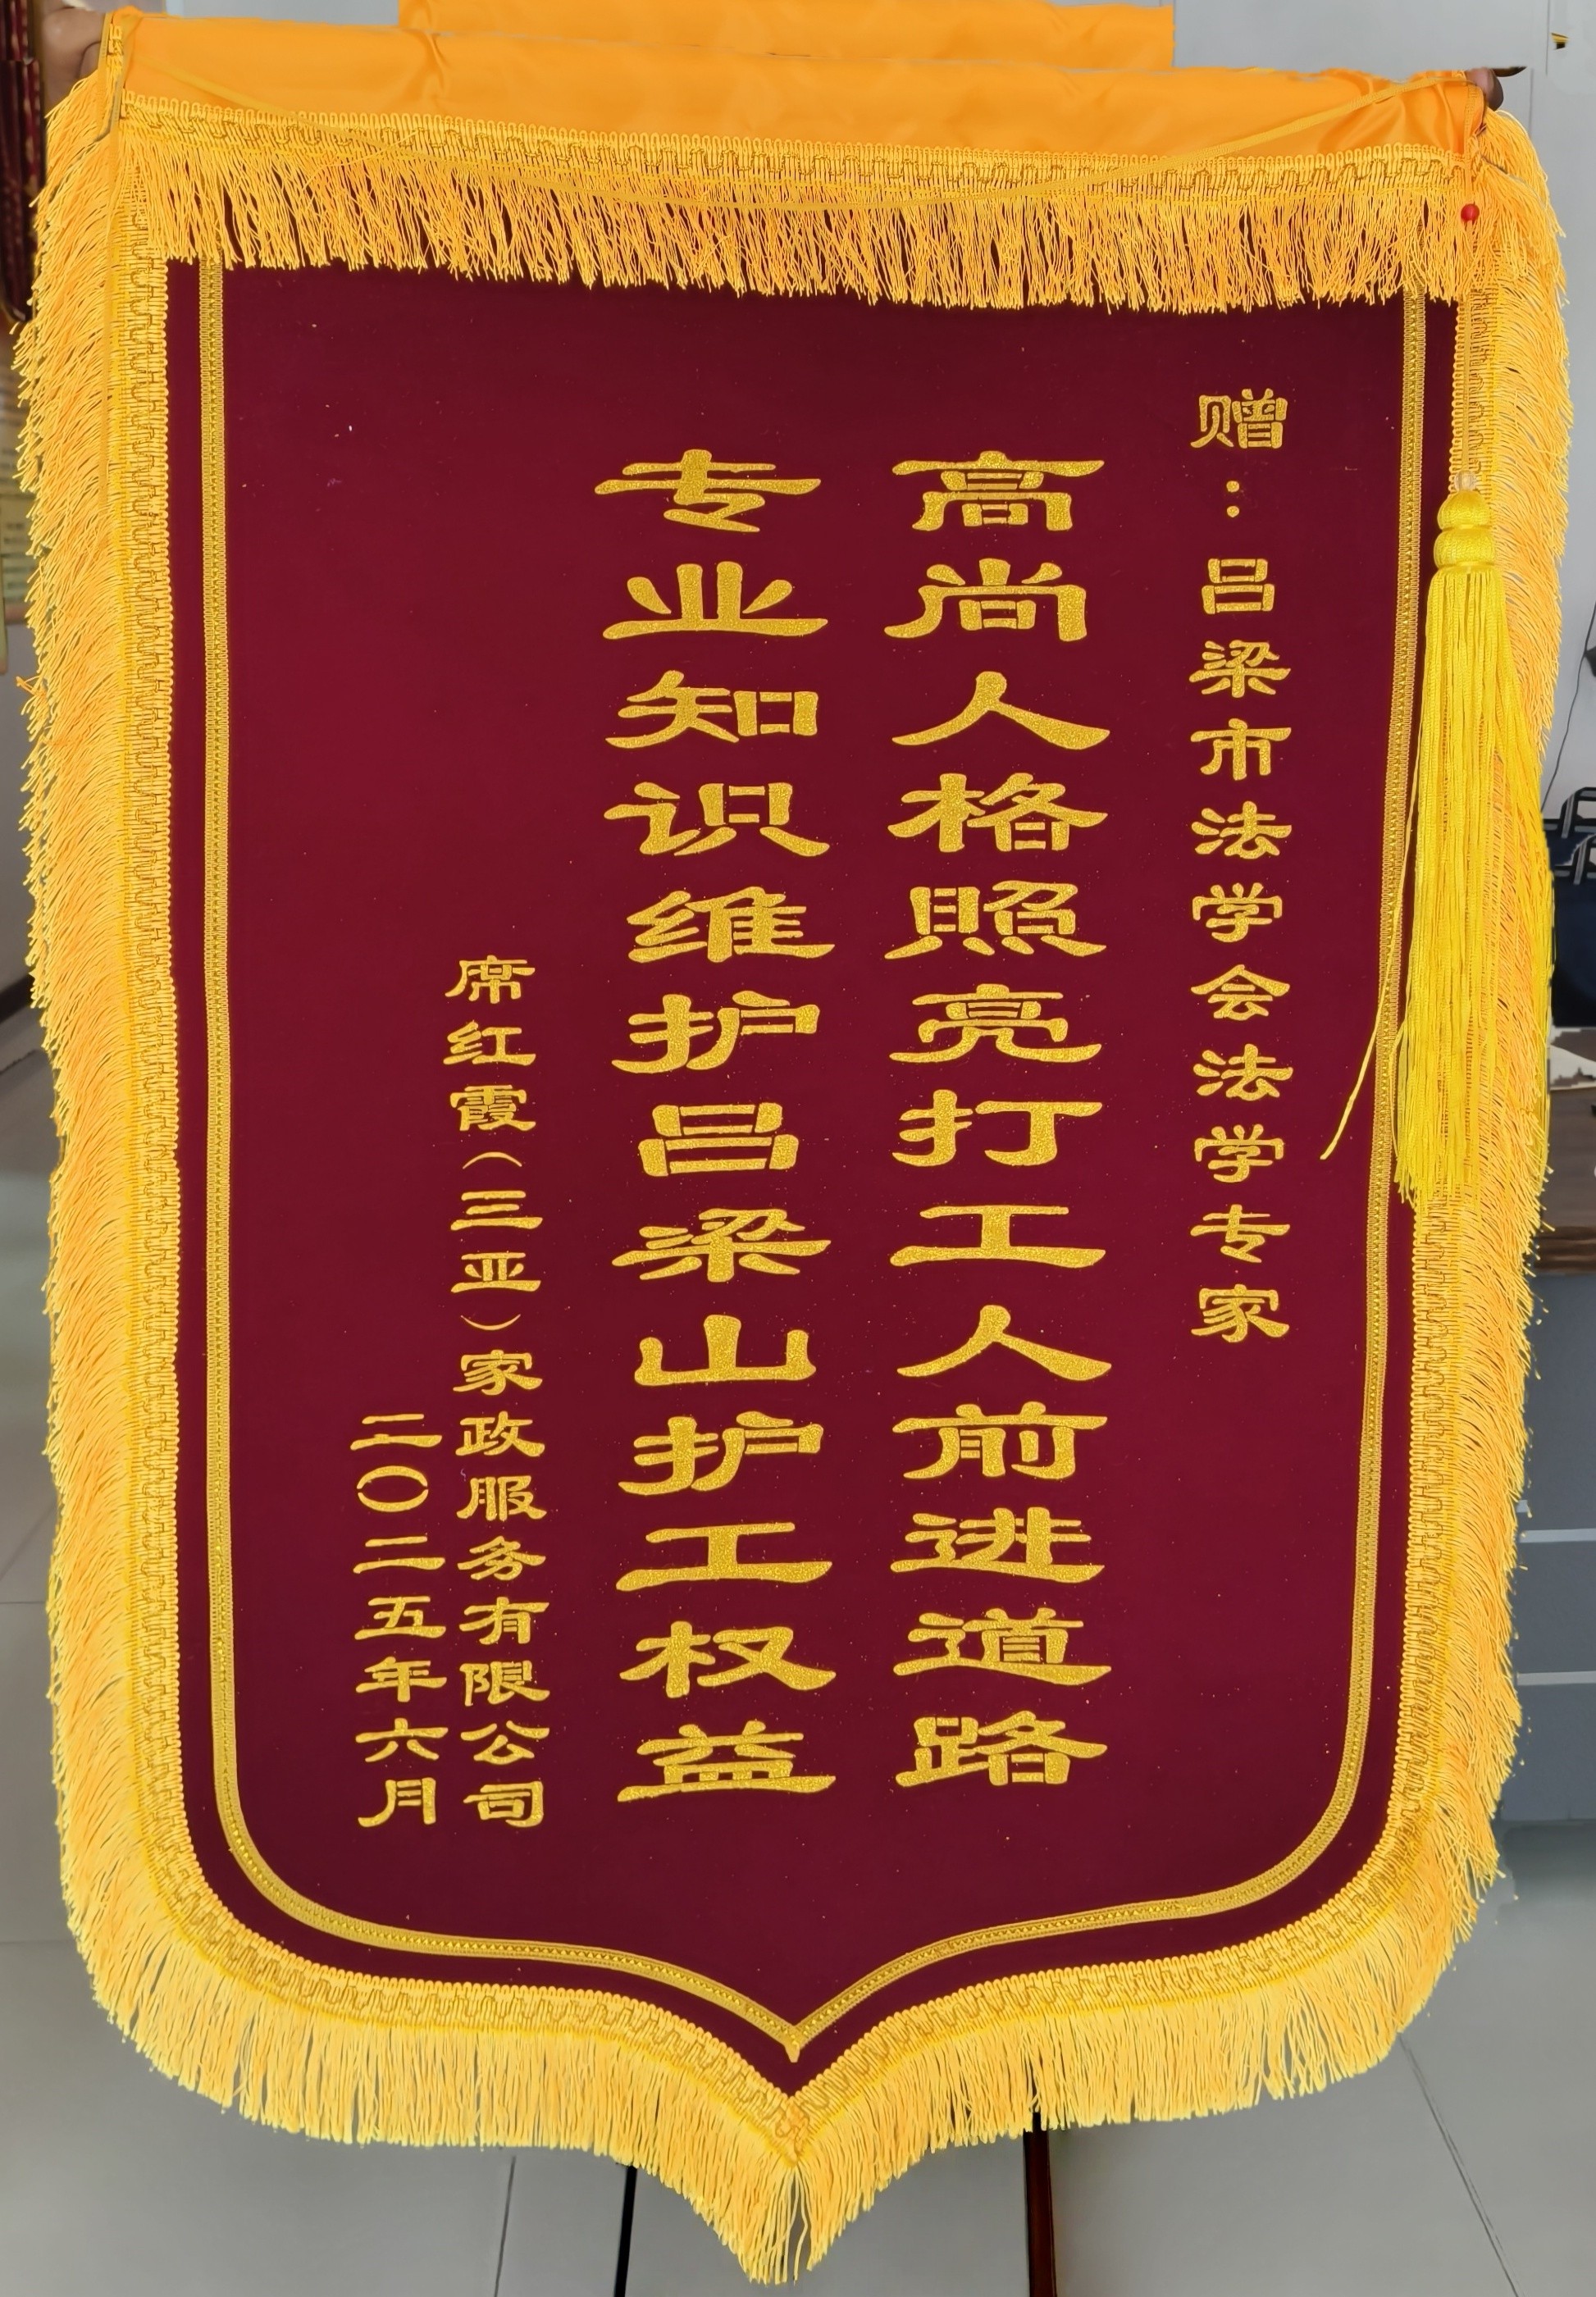 赠：吕梁市法学会法学专家
高尚人格照亮打工人前进道路
专业知识维护吕梁山护工权益
席红霞（三亚）家政服务有限公司
二〇二五年六月